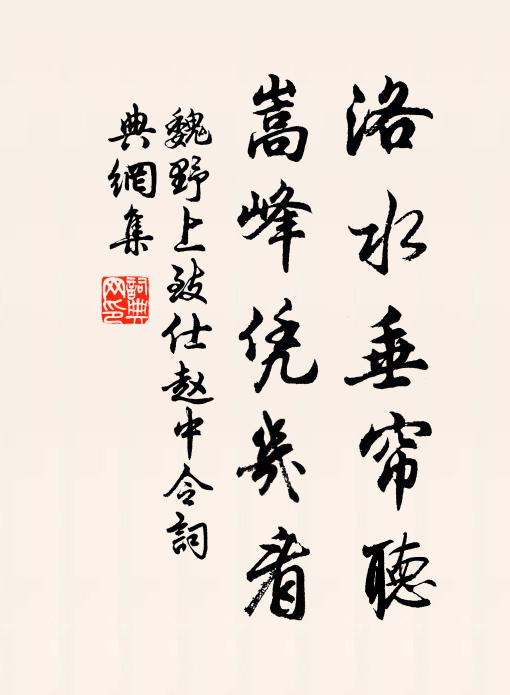 洛水垂帘聽
嵩峰凭幾看
魏野上致仕赵中令詞
典網集
詞典网印